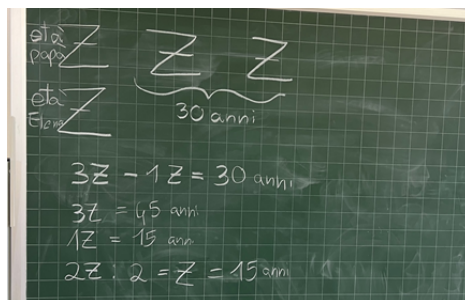 età papà Z Z Z
30 anni
età Elena Z
3Z - 1Z = 30 anni
3Z = 45 anni
1Z = 15 anni
2Z : 2 = Z = 15 anni